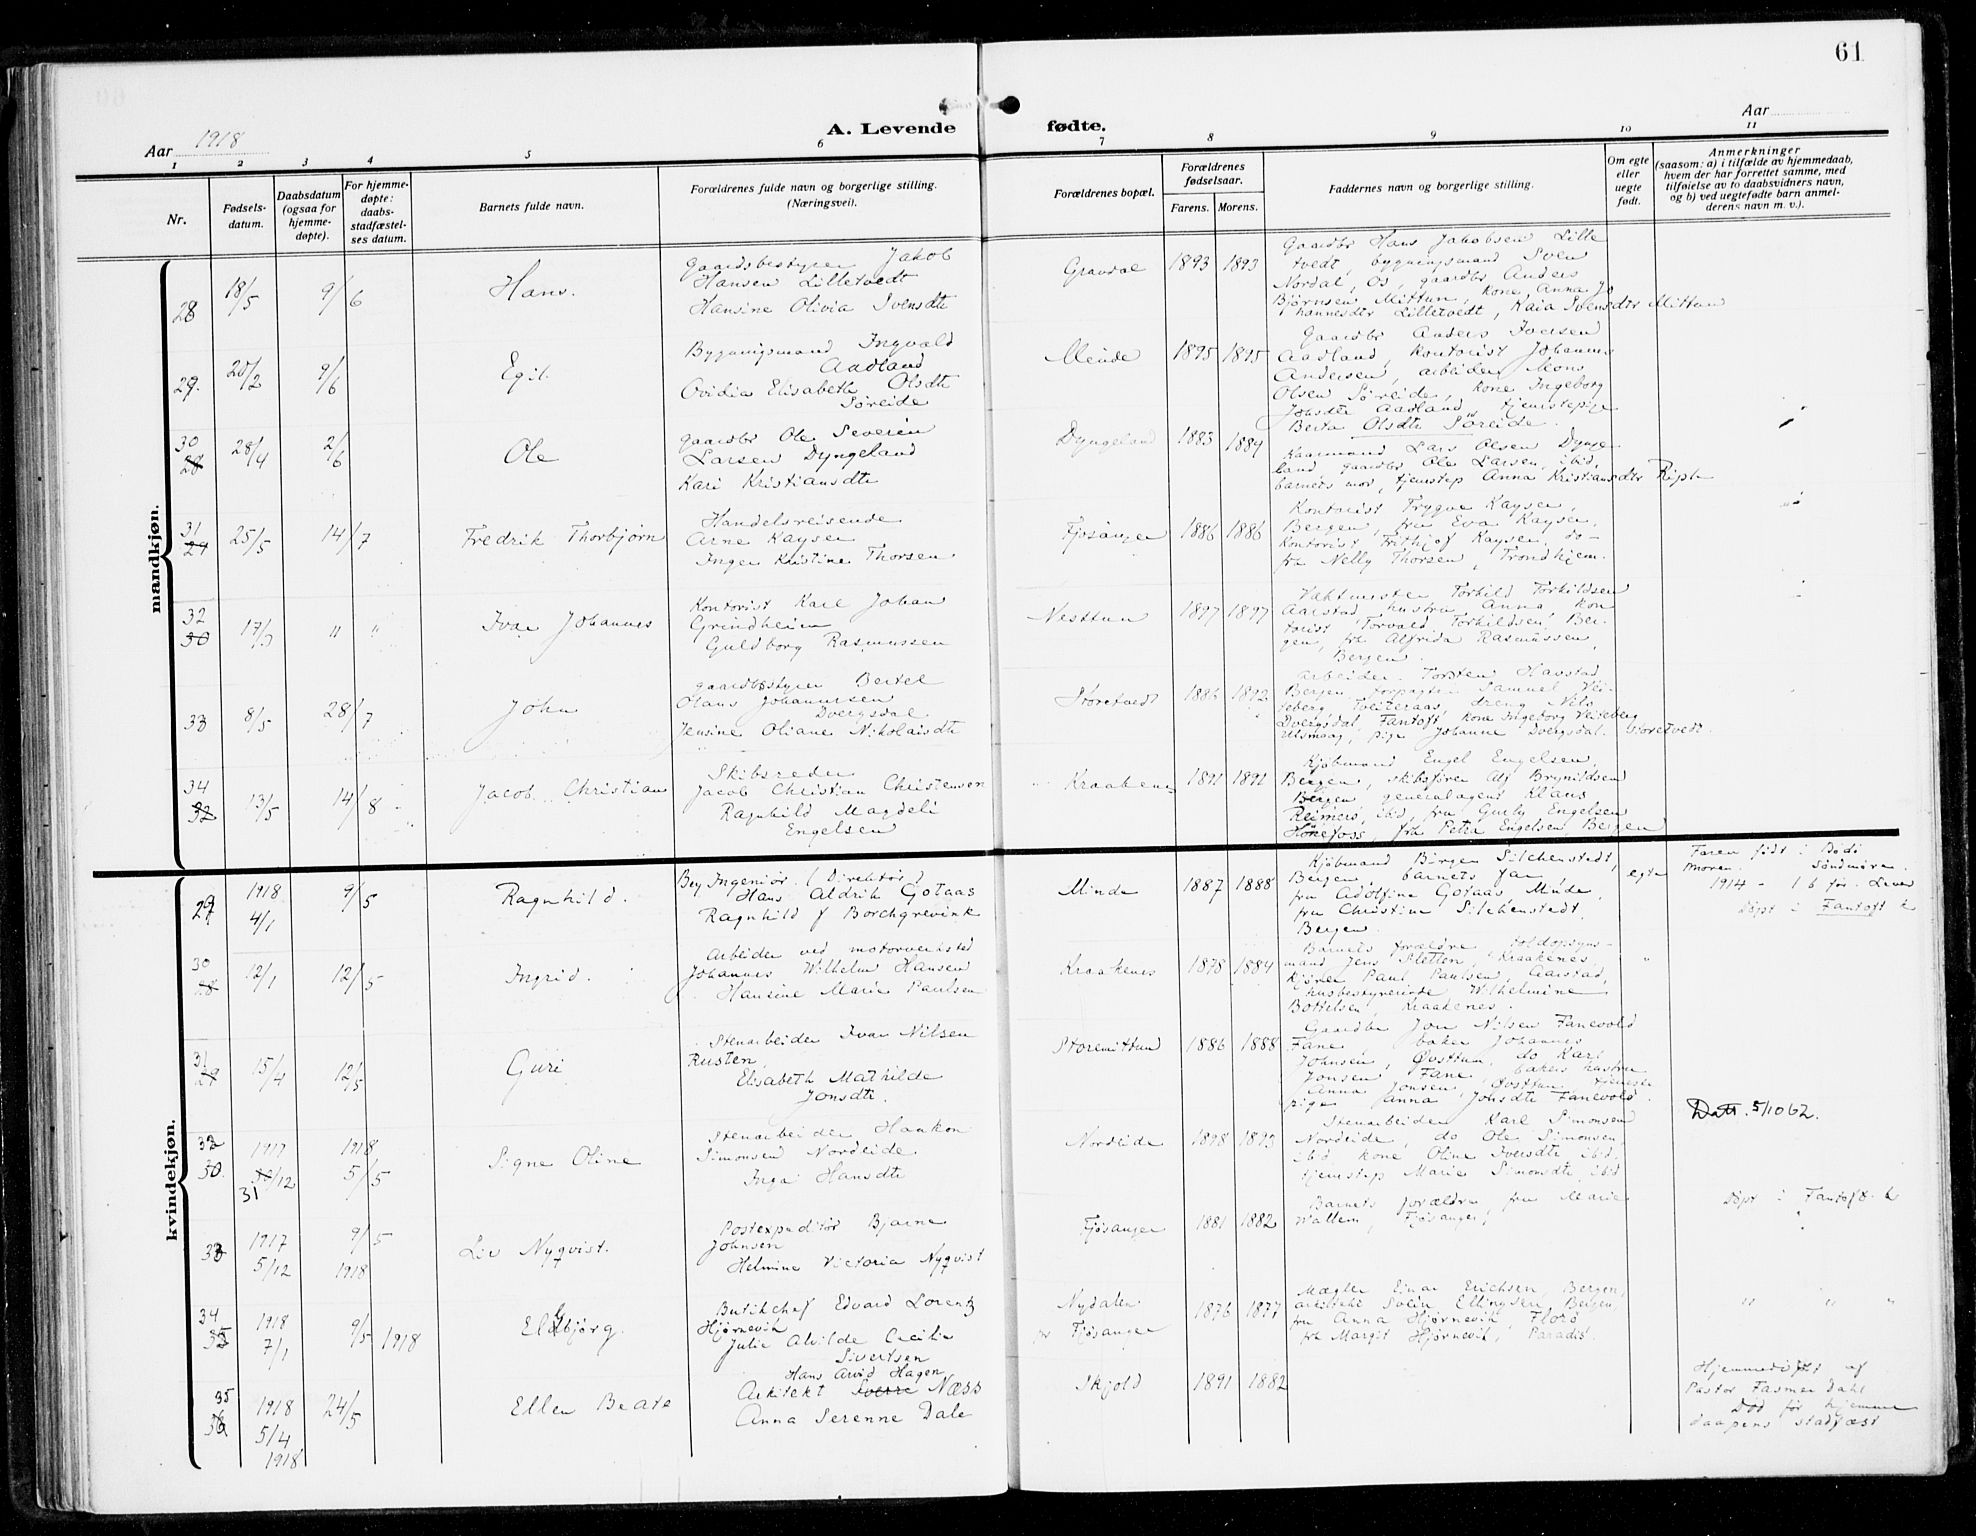 61
Aar 1918
A. Levende fødte.
Aar
1 2 3 4 5 6 7 8 9 10 11
Nr.
Fødsels-
datum.
Daabsdatum
(ogsaa for
hjemme-
døpte).
For hjemme-
døpte:
daabs-
stadfæstel-
ses datum.
Barnets fulde navn.
Forældrenes fulde navn og borgerlige stilling.
(Næringsvei).
Forældrenes bopæl.
Forældrenes
fødselsaar.
Farens. Morens.
Faddernes navn og borgerlige stilling.
Om egte
eller
uegte
født.
Anmerkninger
(saasom: a) i tilfælde av hjemmedaab,
hvem der har forrettet samme, med
tilføielse av to daabsvidners navn,
og b) ved uegtefødte barn anmel-
derens navn m. v.).
mandkjøn.
28 18/5 9/6 Hans.
Gaardsbestyrer Jakob
Hansen Lilletvedt
Hansine Olivia Svensdtr
Gravdal 1893 1893
Gaardbr Hans Jakobsen Lille
tvedt, bygningsmand Sven
Nordal, Os, gaardbr Anders
Bjørnsen Mittun, kone Anna Jo
hannesdtr Lilletvedt, Kaia Svensdtr Mittun
29. 20/2 9/6 Egil.
Bygningsmand Ingvald
Aadland
Ovidia Elisabeth Olsdtr
Søreide
Minde 1895 1895
Gaardbr Anders Iversen
Aadland, kontorist Johannes
Andersen, arbeider Mons
Olsen Søreide, kone Ingeborg
Johsdtr Aadland, tjenestepige
Berta Olsdtr Søreide.
30 28 28/4 2/6 Ole
gaardbr Ole Severin
Larsen Dyngeland
Kari Kristiansdtr
Dyngeland 1883 1884
Kaarmand Lars Olsen Dynge
land, gaardbr Ole Larsen, ibid,
barnets mor, tjenstep Anna Kristiansdtr Riple
31 29 25/5 14/7 Fredrik Thorbjørn
Handelsreisende
Arne Kayser
Inger Kristine Thorsen
Fjøsanger 1886 1886
Kontorist Trygve Kayser,
Bergen, fru Eva Kayser,
kontorist Frithjof Kayser, do-
frk Nelly Thorsen, Trondhjem.
32 30 17/3 " " Ivar Johannes
Kontorist Karl Johan
Grindheim
Guldborg Rasmussen
Nesttun 1897 1897
Vaktmester Torkild Torkildsen
Aarstad, hustru Anna, kon
torist Torvald Torkildsen, Ber-
gen, frk Alfrida Rasmussen,
Bergen.
33 8/5 28/7 John
gaardbestyrer Bertel
Olaus Johannesen
Dvergsdal
Jensine Oliane Nikolaisdtr
Storetvedt 1886 1892
arbeider Torsten Havstad
Bergen, forpagter Samuel Vei-
teberg, dreng Nils
Dvergsdal, Fantoft, kone Ingeborg Veiteberg
Ulsmaag, pige Johanne Dvergsdal. Storetvedt.
34 32 13/5 14/8 Jacob Christian
Skibsreder
Jacob Christian Christensen
Ragnhild Magdeli
Engelsen
Kraakenes 1891 1891
Kjøbmand Engel Engelsen,
Bergen, skibsfører Alf Brynildsen
Bergen, generalagent Klaus
Reimers, ibid, fru Gurly Engelsen
Hønefoss, frk Petra Engelsen Bergen
kvindekjøn.
29 1918
4/1 9/5 Ragnhild.
Berg Ingeniør (Direktør)
Hans Aldrik Gotaas
Ragnhild f Borchgrevink
Minde 1887 1888
Kjøbmand Birger Silchenstedt,
Bergen, barnets far
fru Adolfine Gotaas Minde,
fru Christine Silchenstedt,
Bergen.
egte
Faren født i Bodø
Moren Søndmøre.
1914 - 1 b før. Lever
Døpt i Fantoft k
30 12/1 12/5 Ingrid.
Arbeider ved motorverksted
Johannes Wilhelm Hansen
Hansine Marie Paulsen
Kraakenes 1878 1884
Barnets forældre, toldopsyns-
mand Jens Sletten, Kraakenes,
Kjører Paul Paulsen, Aarstad,
husbestyrerinde Wilhelmine
Bottelsen, Kraakenes.
"
31 29 15/4 12/5 Guri
Stenarbeider Ivar Nilsen
Rusten,
Elisabeth Mathilde
Jonsdtr.
Storemittund 1886 1888
Gaardbr Jon Nilsen Fanevold
Fane, baker Johannes
Johnsen, Øvsttun, do Karl
Jonsen Fane, bakers hustru
Anna Jonsen, Øvsttun, tjeneste
pige Anna Johsdtr Fanevold.
32 30. 1917
30/12
31 1918
5/5 Signe Oline
Stenarbeider Haakon
Simonsen Nordeide
Inga Hansdtr
Nordeide 1898 1893
Stenarbeider Karl Simonsen
Nordeide, do Ole Simonsen
ibid, kone Oline Iversdtr, ibid,
tjenstep Marie Simonsdtr, ibid
Datt. 5/10 62.
33 1917
5/12 9/5
1918 Liv Nyqvist.
Postexpeditør Bjarne
Johnsen
Helmine Victoria Nyqvist
Fjøsanger 1881 1882
Barnets forældre, fru Marie
Wallem, Fjøsanger,
Døpt i Fantoft k
34 1918
7/1 9/5 1918 Eldbjørg.
Butikchef Edvard Lorentz
Hjørnevik
Julie Alvilde Cecilie
Sivertsen
Nydalen
pr Fjøsanger 1876 1877
Mægler Einar Erichsen, Bergen,
arkitekt Svein Ellingsen Bergen,
fru Anna Hjørnevik, Florø
frk Margit Hjørnevik, Paradis.
" " "
35 36 1918
5/4
1918 24/5 Ellen Beate
Hans Arvid Hagen
Arkitekt Sverre Næss
Anna Serenne Dale
Skjold 1891 1882
Hjemmedøpt af
Pastor Fasmer Dahl
Død før hjemme
daapens stadfæst